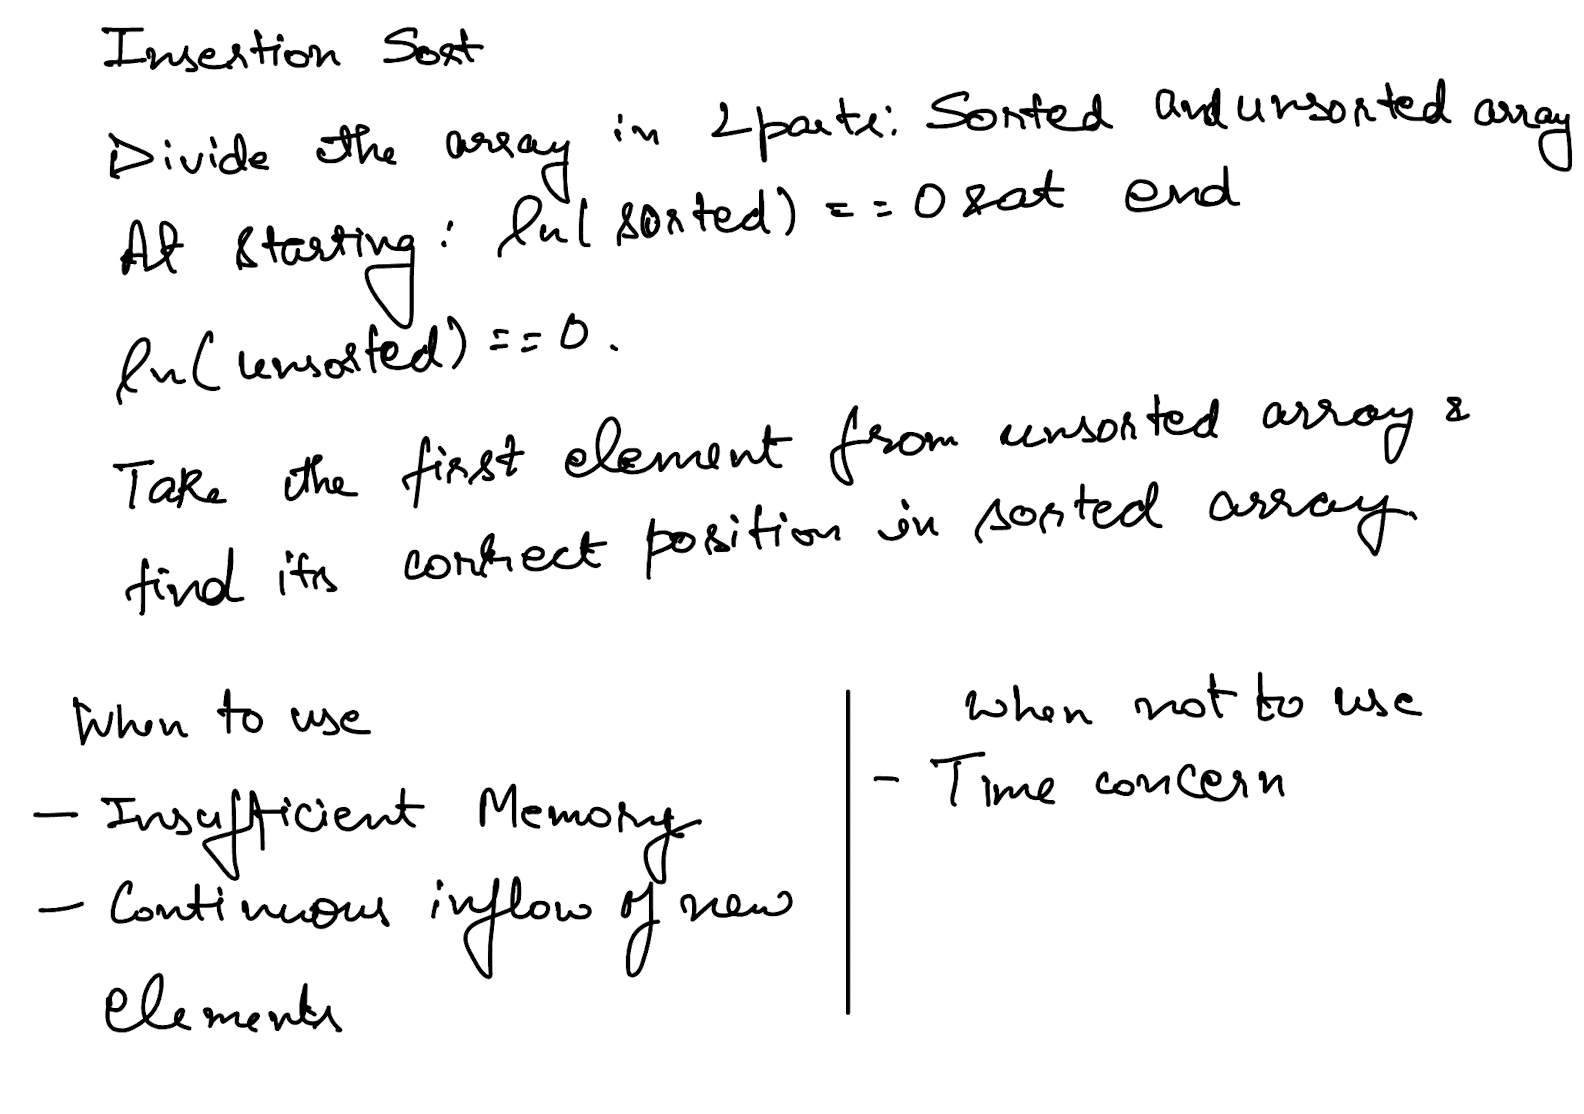 Insertion Sort
Divide the array in 2 parts: Sorted and unsorted array
At starting: ln(sorted) == 0 & at end
ln(unsorted) == 0.
Take the first element from unsorted array &
find its correct position in sorted array.
When to use
- Insufficient Memory
- Continuous inflow of new
elements
When not to use
- Time concern